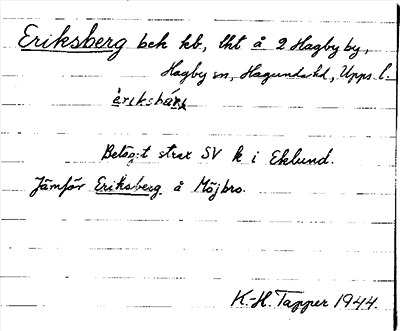 Eriksberg beb kb, lht å 2 Hagby by,
Hagby sn, Hagunda hd, Upps. l.
Beläget strax SV k i Eklund.
Jämför Eriksberg å Möjbro.
K-H. Tapper 1944.